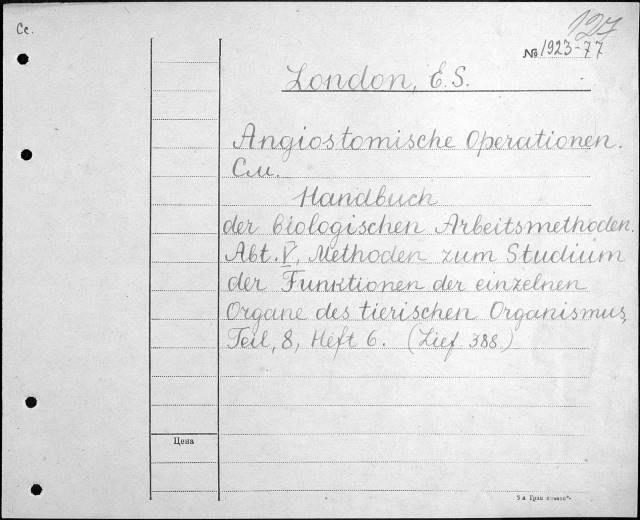 Сс.
127
№ 1923-77
London, E.S.
Angiostomische Operationen.
См.
Handbuch
der biologischen Arbeitsmethoden.
Abt. V, Methoden zum Studium
der Funktionen der einzelnen
Organe des tierischen Organismus,
Teil, 8, Heft 6. (Lief 388.)
Цена